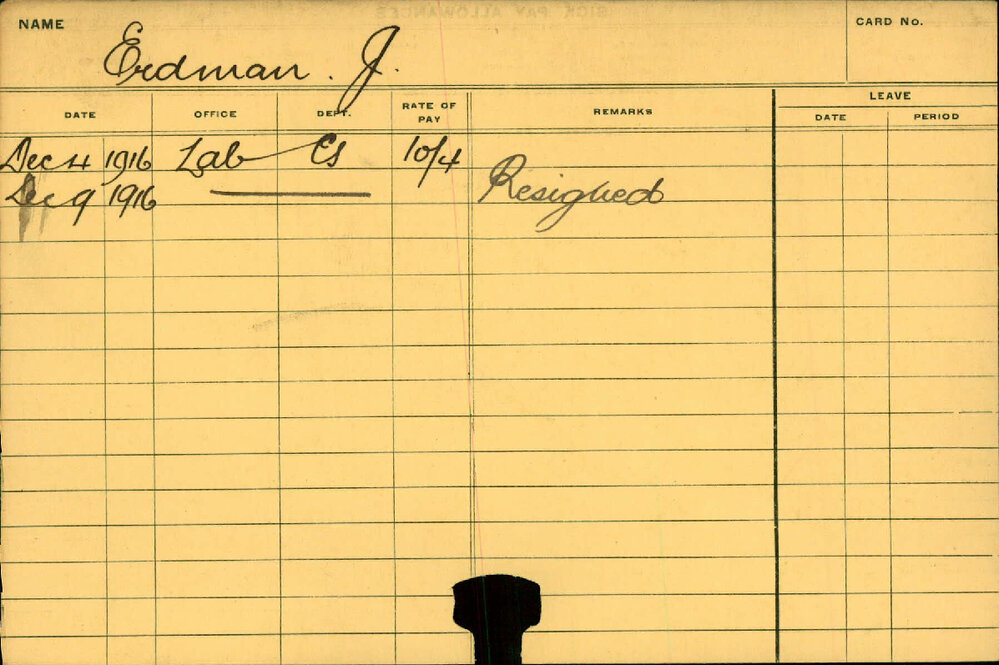 NAME
Erdman. J.
CARD No.
DATE OFFICE DEPT. RATE OF PAY REMARKS LEAVE
DATE PERIOD
Dec 4 1916 Lab Cs 10/4
Dec 9 1916 Resigned